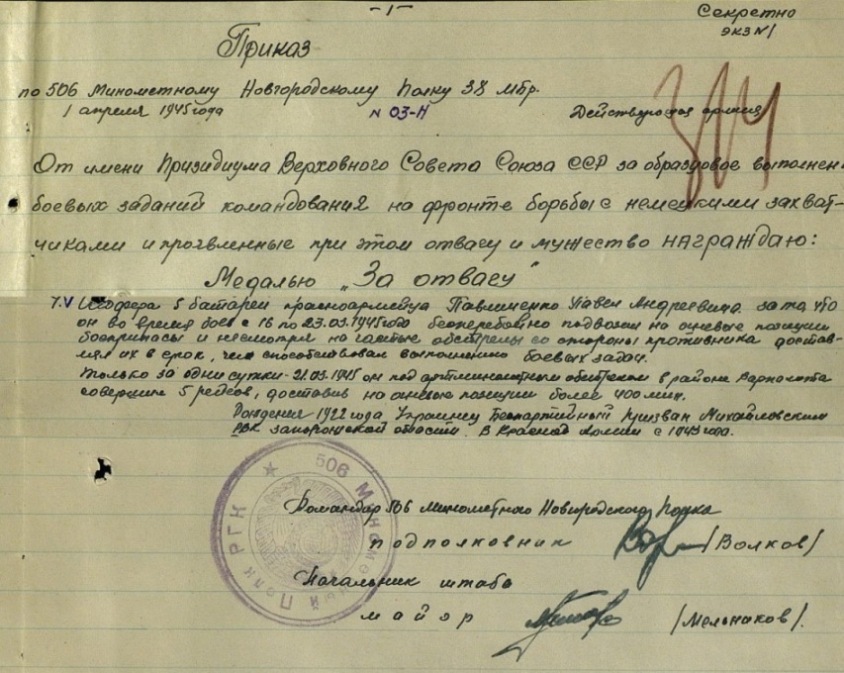 -1-
Секретно
экз №1
Приказ
по 506 Минометному Новгородскому Полку 38 мбр.
1 апреля 1945 года N 03-Н Действующая армия
От имени Призидиума Верховного Совета Союза ССР за образцовое выполнен
боевых заданий командования на фронте борьбы с немецкими захват-
чиками и проявленные при этом отвагу и мужество награждаю:
Медалью „За отвагу"
Шофера 5 батареи красноармейца Павличенко Павел Андреевича за то что
он во время боев с 16 по 23.03.1945 года бесперебойно подвозил на огневые позиции
боеприпасы и несмотря на частые обстрелы со стороны противника достав-
лял их в срок, чем способствовал выполнению боевых задач.
Только за одни сутки - 21.03.1945 он под артминометным обстрелом в районе
совершил 5 рейсов, доставив на огневые позиции более 400 мин.
Рождения 1922 года Украинец Беспартийный призван Михайловским
РВК запорожской области. В Красной Армии с 1943 года.
506 Минометный Полк РГК
Командир 506 минометного Новгородского Полка
подполковник /Волков/
Начальник штаба
майор /Мельников/.